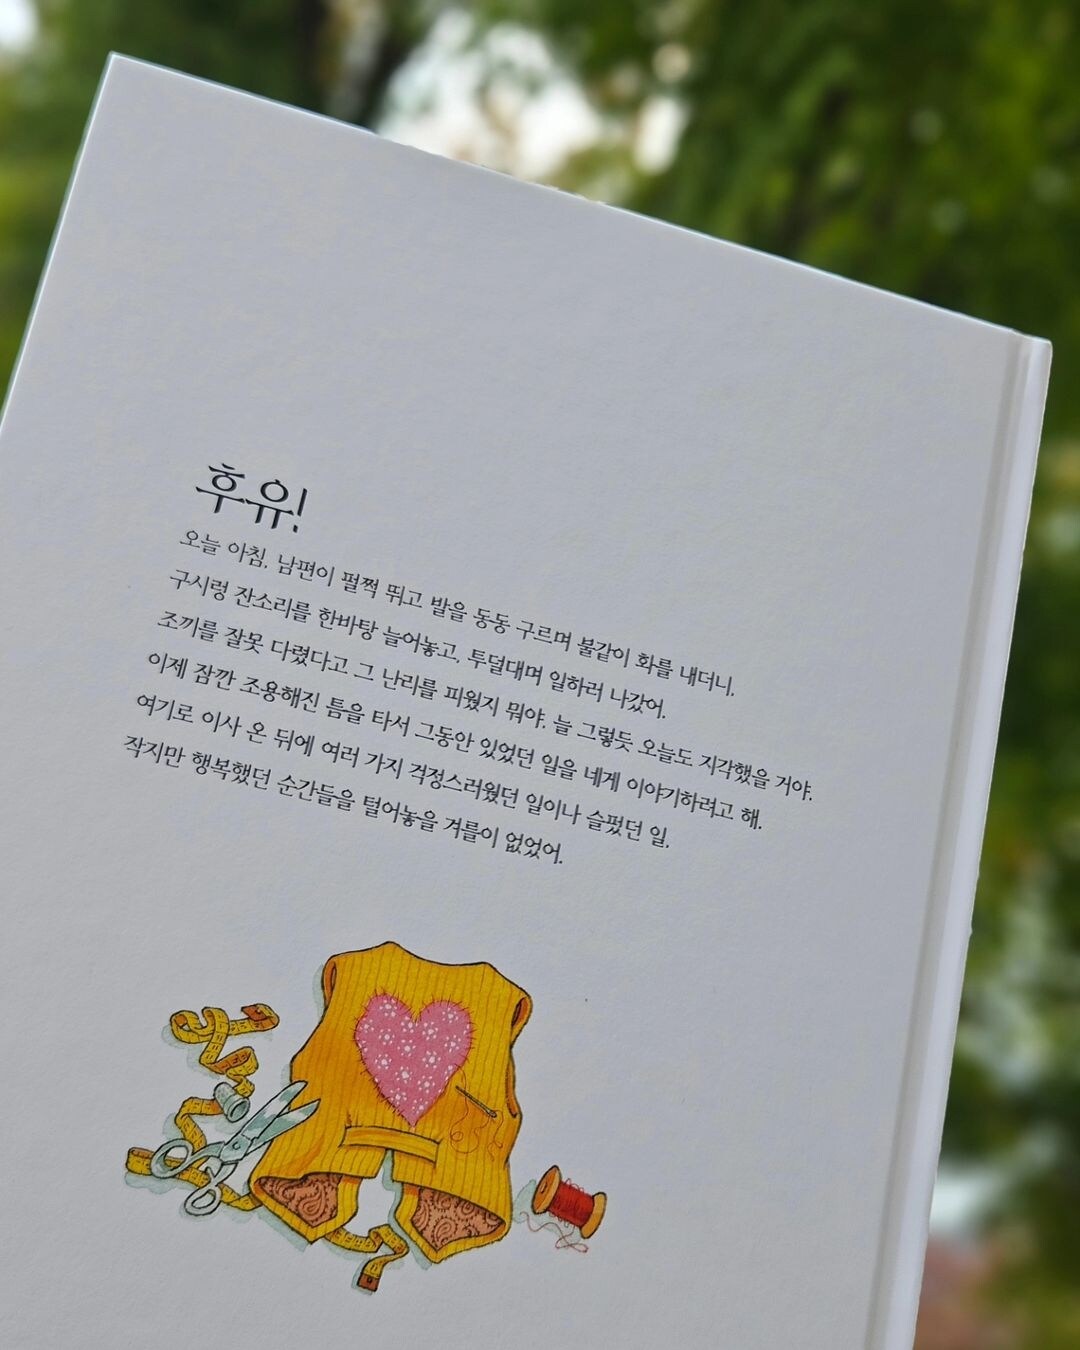 후유!
오늘 아침, 남편이 펄쩍 뛰고 발을 동동 구르며 불같이 화를 내더니,
구시렁 잔소리를 한바탕 늘어놓고, 투덜대며 일하러 나갔어.
조끼를 잘못 다렸다고 그 난리를 피웠지 뭐야. 늘 그렇듯 오늘도 지각했을 거야.
이제 잠깐 조용해진 틈을 타서 그동안 있었던 일을 네게 이야기하려고 해.
여기로 이사 온 뒤에 여러 가지 걱정스러웠던 일이나 슬펐던 일,
작지만 행복했던 순간들을 털어놓을 겨를이 없었어.